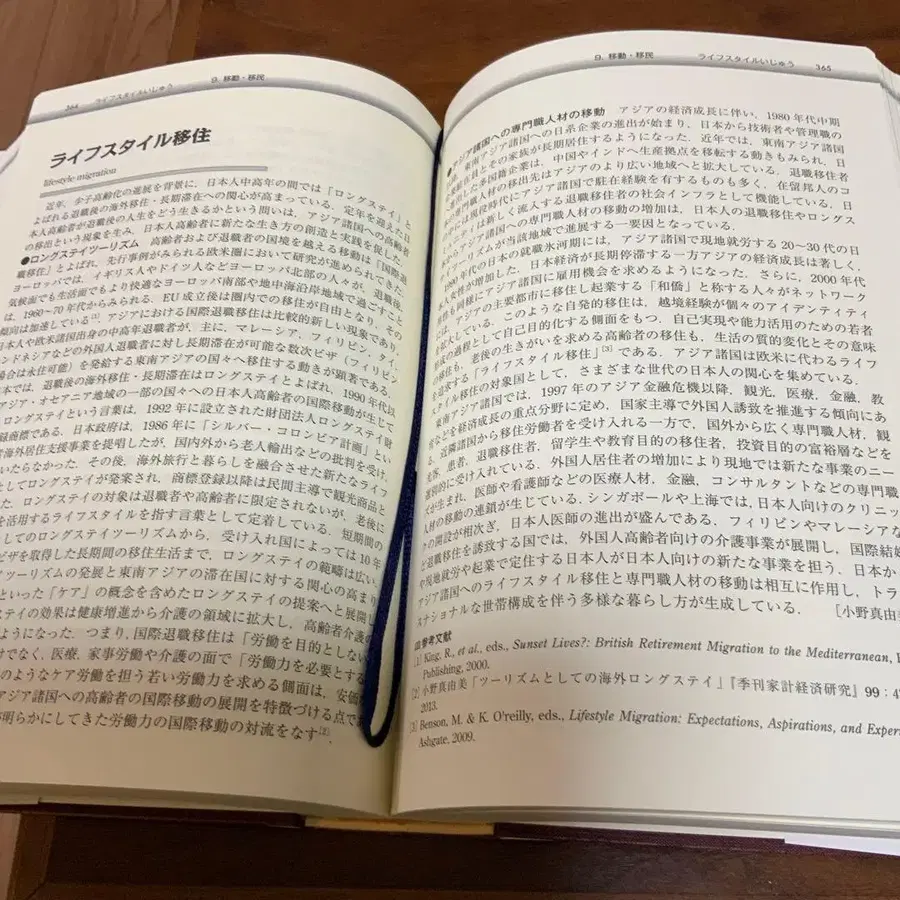 364 ライフスタイルいじゅう 9. 移動・移民
ライフスタイル移住
lifestyle migration
近年，少子高齢化の進展を背景に，日本人中高年の間では「ロングステイ」と
よばれる退職後の海外移住・長期滞在への関心が高まっている．定年を迎えた日
本人高齢者が退職後の人生をどう生きるかという問いは，アジア諸国への高齢者
の移出という現象を生み，日本人高齢者に新たな生き方の創造と実践を促した．
●ロングステイツーリズム 高齢者および退職者の国境を越える移動は「国際退
職移住」とよばれ，先行事例がみられる欧米圏において研究が進められてきた．
ヨーロッパでは，イギリス人やドイツ人などヨーロッパ北部の人々が，退職後，
気候面でも生活面でもより快適なヨーロッパ南部や地中海沿岸地域で過ごすこと
は，1960〜70年代からみられる．EU成立後は圏内での移住が自由となり，その
傾向は加速している[1]．アジアにおける国際退職移住は比較的新しい現象であり，
本人や欧米諸国出身の中高年退職者が，主に，マレーシア，フィリピン，タイ，
ンドネシアなどの外国人退職者に対し長期滞在が可能な数次ビザ（フィリピン
場合は永住可能）を発給する東南アジアの国々へ移住する動きが顕著である．
本では，退職後の海外移住・長期滞在はロングステイとよばれ，1990年代以
アジア・オセアニア地域の一部の国々への日本人高齢者の国際移動が生じて
ロングステイという言葉は，1992年に設立された財団法人ロングステイ財
録商標である．日本政府は，1986年に「シルバー・コロンビア計画」とい
海外居住支援事業を提唱したが，国内外から老人輸出などの批判を受け，
いたらなかった．その後，海外旅行と暮らしを融合させた新たなライフ
としてロングステイが発案され，商標登録以降は民間主導で観光商品と
た．ロングステイの対象は退職者や高齢者に限定されないが，老後に
を活用するライフスタイルを指す言葉として定着している．短期間の
してのロングステイツーリズムから，受け入れ国によっては10年
ビザを取得した長期間の移住生活まで，ロングステイの範疇は広い．
ツーリズムの発展と東南アジアの滞在国に対する関心の高まり
といった「ケア」の概念を含めたロングステイの提案へと展開し
テイの効果は健康増進から介護の領域に拡大し，高齢者介護の
ようになった．つまり，国際退職移住は「労働を目的としない
けでなく，医療，家事労働や介護の面で「労働力を必要とする
のようなケア労働を担う若い労働力を求める側面は，安価
アジア諸国への高齢者の国際移動の展開を特徴づける点で
明らかにしてきた労働力の国際移動の対流をなす[2]．
9. 移動・移民 ライフスタイルいじゅう 365
●アジア諸国への専門職人材の移動 アジアの経済成長に伴い，1980年代中期
，東南アジア諸国への日系企業の進出が始まり，日本から技術者や管理職の
駐在員とその家族が長期居住するようになった．近年では，東南アジア諸国
出した多国籍企業は，中国やインドへ生産拠点を移転する動きもみられ，日
の専門職人材の移出先はアジアのより広い地域へと拡大している．退職移住者
には現役時代にアジア諸国で駐在経験を有するものも多く，在留邦人のコ
ニティは新しく流入する退職移住者の社会インフラとして機能している．日
アジア諸国への専門職人材の移動の増加は，日本人の退職移住やロングス
ツーリズムが当該地域で進展する一要因となっている．
90年代の日本の就職氷河期には，アジア諸国で現地就労する20〜30代の日
人女性が増加した．日本経済が長期停滞する一方アジアの経済成長は著しく，
性も同様にアジア諸国に雇用機会を求めるようになった．さらに，2000年代
は，アジアの主要都市に移住し起業する「和僑」と称する人々がネットワーク
拡大している．このような自発的移住は，越境経験が個々のアイデンティティ
成の過程として自己目的化する側面をもつ．自己実現や能力活用のための若者
移住も，老後の生きがいを求める高齢者の移住も，生活の質的変化とその意味
を追求する「ライフスタイル移住」[3]である．アジア諸国は欧米に代わるライフ
スタイル移住の対象国として，さまざまな世代の日本人の関心を集めている．
東南アジア諸国では，1997年のアジア金融危機以降，観光，医療，金融，教
などを経済成長の重点分野に定め，国家主導で外国人誘致を推進する傾向にあ
る．近隣諸国から移住労働者を受け入れる一方で，国外から広く専門職人材，観
光客，患者，退職移住者，留学生や教育目的の移住者，投資目的の富裕層などを
選別的に受け入れている．外国人居住者の増加により現地では新たな事業のニー
ズが生まれ，医師や看護師などの医療人材，金融，コンサルタントなどの専門職
人材の移動の連鎖が生じている．シンガポールや上海では，日本人向けのクリニッ
クの開設が相次ぎ，日本人医師の進出が盛んである．フィリピンやマレーシアな
ど退職移住を誘致する国では，外国人高齢者向けの介護事業が展開し，国際結婚
や現地就労や起業で定住する日本人が日本人向けの新たな事業を担う．日本から
アジア諸国へのライフスタイル移住と専門職人材の移動は相互に作用し，トラ
スナショナルな世帯構成を伴う多様な暮らし方が生成している． ［小野真由美
参考文献
[1] King, R., et al., eds., Sunset Lives?: British Retirement Migration to the Mediterranean,
Publishing, 2000.
[2] 小野真由美「ツーリズムとしての海外ロングステイ」『季刊家計経済研究』99：4
2013.
[3] Benson, M. & K. O'reilly, eds., Lifestyle Migration: Expectations, Aspirations, and Exper
Ashgate, 2009.